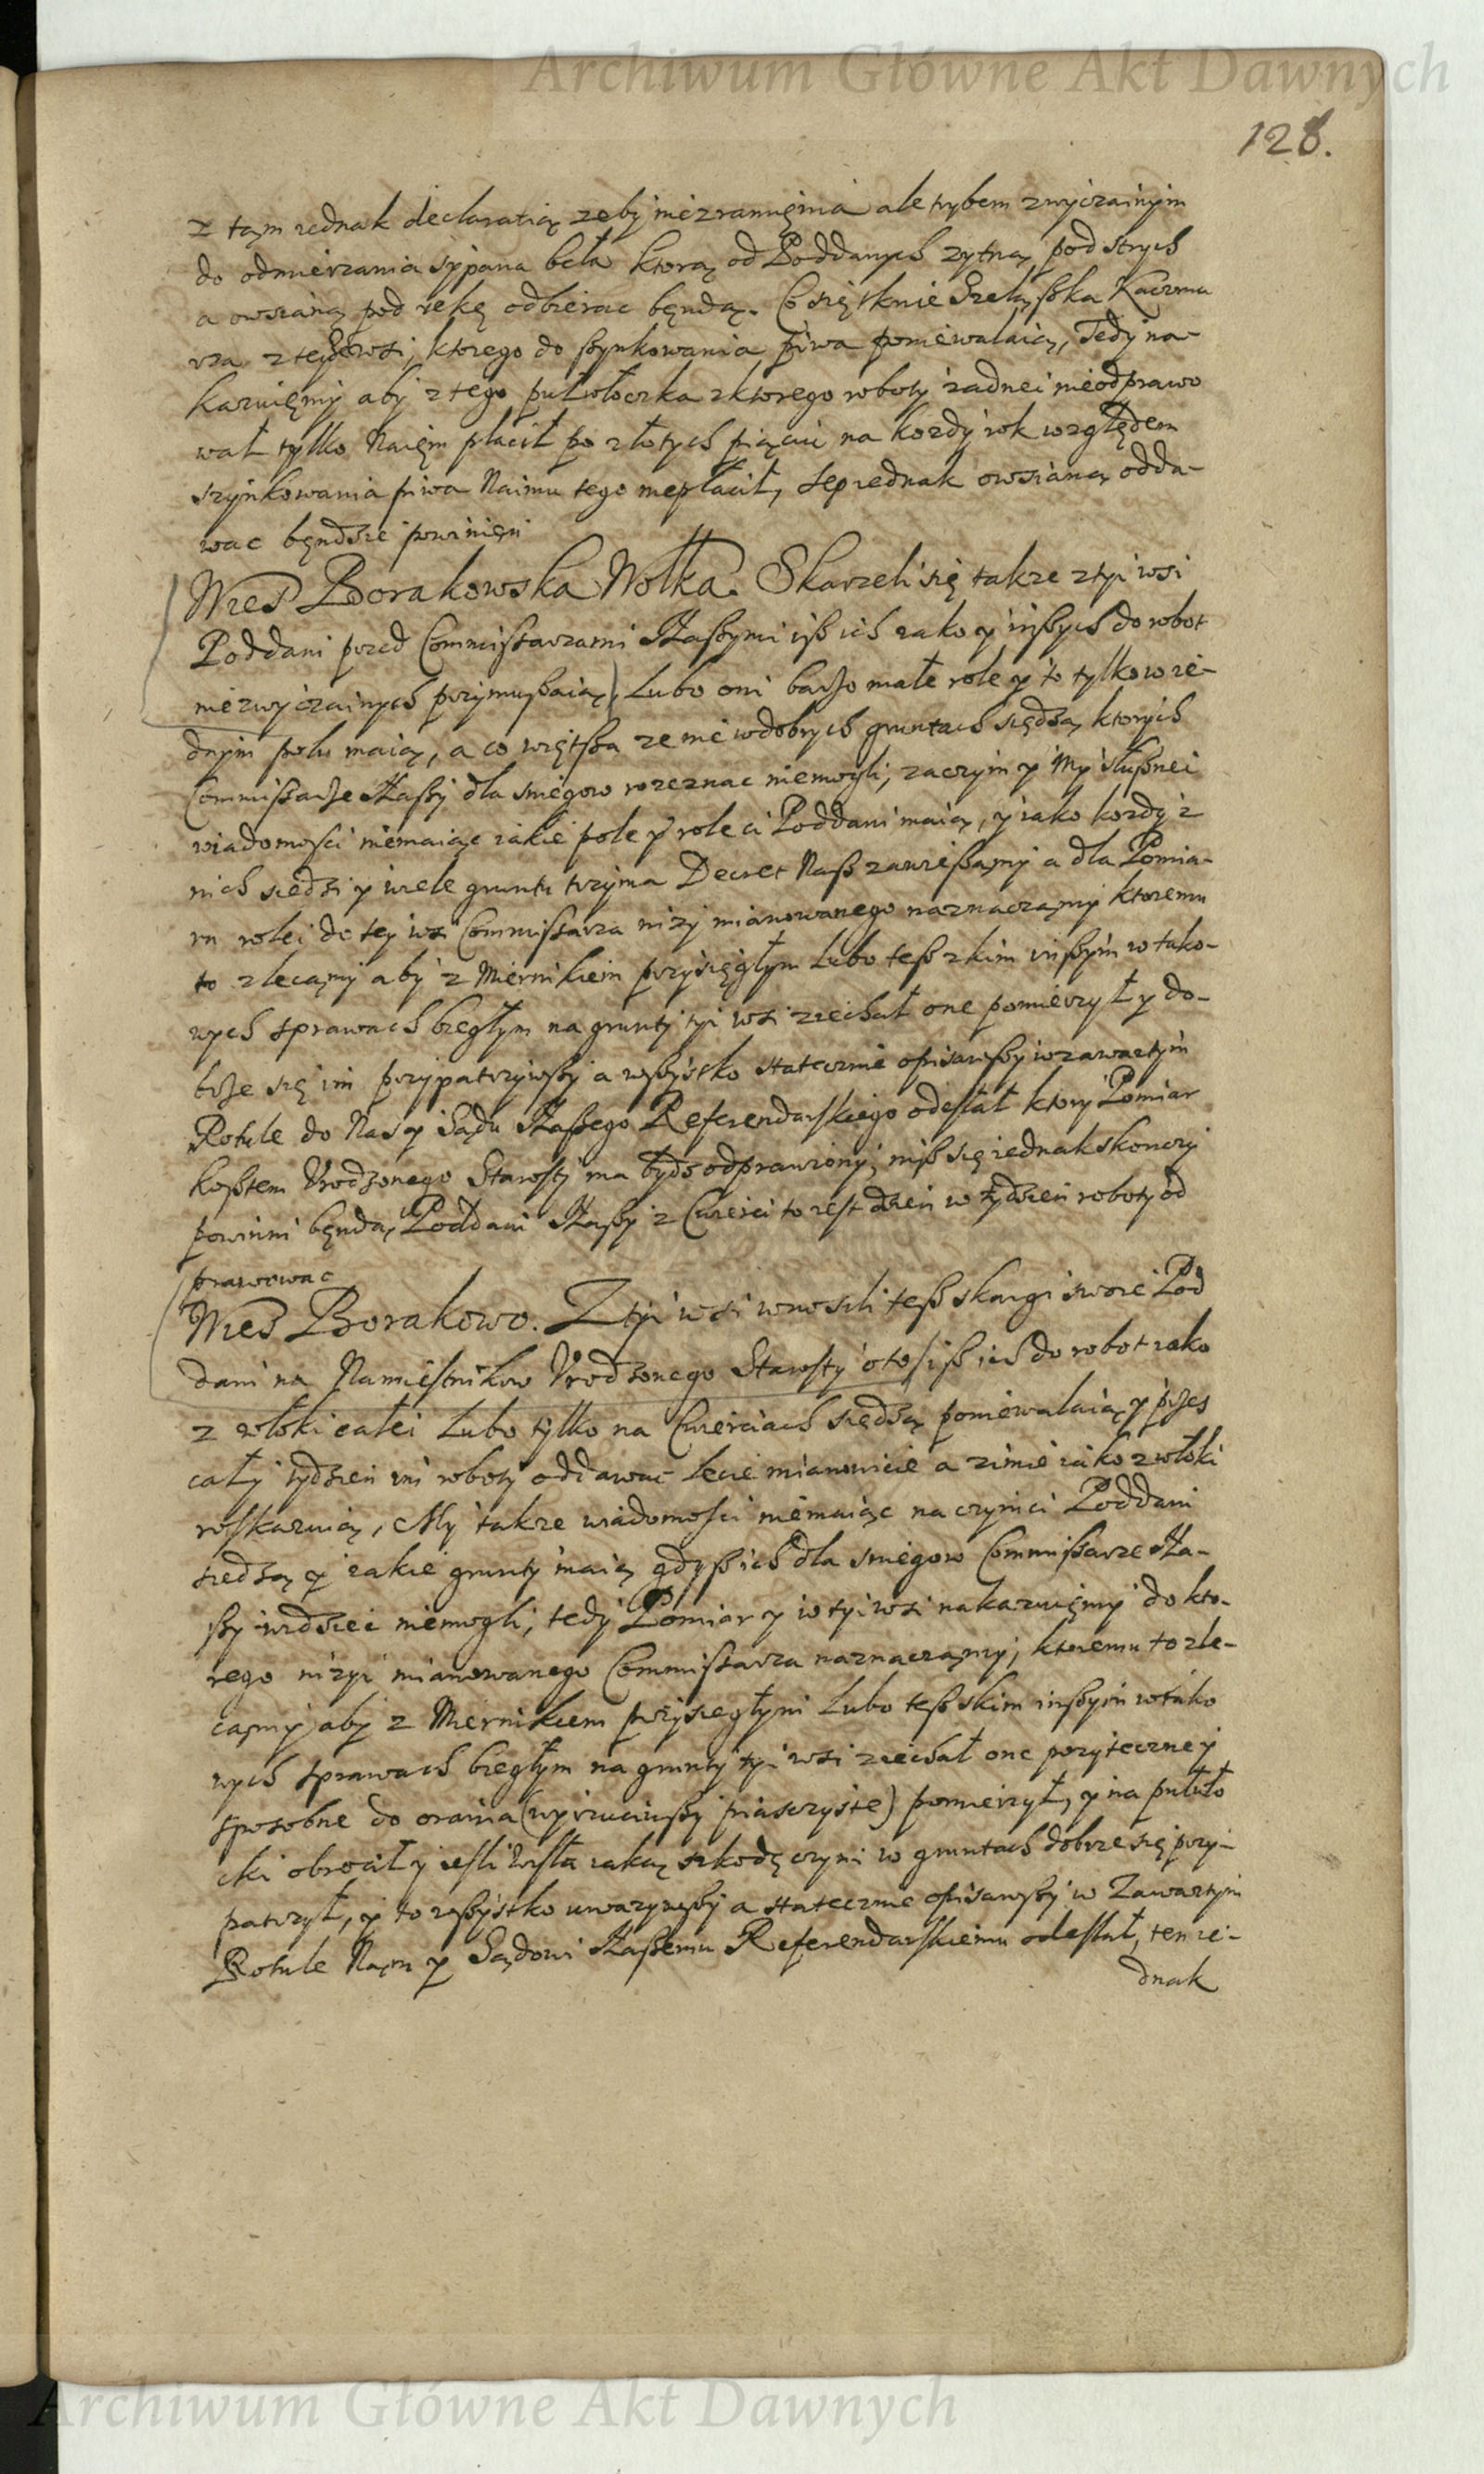 Archiwum Główne Akt Dawnych
128.
z tąm iednak declaratią zeby nie z ramięnia ale trybem zwyczainym
do odmierzania sypana beła ktorą od Poddanych zytną pod strych
a owsianą pod rękę odbierac będą. Co się tknie Karczma
rza z teyże wsi, ktorego do szynkowania piwa poniewalaią, Tedy na-
kazuięmy aby z tego pułwłoczka z ktorego roboty zadnei nieodprawo
wał tylko Naięm płacił po złotych pięciu na kozdy rok względem
szynkowania piwa Naimu tego niepłacił, sep iednak owsianą odda-
wac będzie powinięn
Wieś Borakowska Wolka. Skarzeli się takze z tyi wsi
Poddani przed Commissarzami Naszymi isz ich iako y inszych do robot
niezwyczainych przymuszaią, Lubo oni barzo małe role y to tylko w ie-
dnym polu maią, a co więtsza ze nie w dobrych gruntach siedzą, ktorych
Commissarze Naszy dla sniegow rozeznac niemogli; zaczym y My słusznei
wiadomości niemaiąc iakie pole y role ci Poddani maią, y iako kozdy z
nich siedzi y wiele gruntu trzyma Decret Nasz zawieszamy a dla Pomia-
ru rolei do tey wsi Commissarza nizy mianowanego naznaczamy ktoremu
to zlecamy aby z Miernikiem przysięgłym Lubo tesz z kim inszym w tako-
wych sprawach biegłym na grunty tyi wsi ziechał one pomierzył y do-
brze się im przypatrzywszy a wszystko statecznie opisawszy w zawartym
Rotule do Nas y Sądu Naszego Referendarskiego odesłał ktory Pomiar
kosztem Urodzonego Starosty ma bydz odprawiony; nisz się iednak skonczy
powinni będą Poddani Naszy z Cwierci to iest dzień w tydzień roboty od
prawowac
Wieś Borakowo. Z tyi wsi wnosili tesz skargi swoie Pod
dani na Namiestnikow Urodzonego Starosty o to, isz ich do robot iako
z włoki całei Lubo tylko na Cwierciach siedzą poniewalaią y przes
cały tydzień im roboty oddawać Lecie mianowicie a zimie iako z włoki
roskazuią, My takze wiadomości niemaiąc na czym ci Poddani
siedzą y iakie grunty maią gdysz ich dla sniegow Commissarze Na-
szy widziec niemogli, tedy Pomiar y w tyi wsi nakazuięmy do kto-
rego nizyi mianowanego Commissarza naznaczamy, ktoremu to zle-
camy aby z Miernikiem przysiegłym Lubo tesz s kim inszym w tako
wych sprawach biegłym na grunty tyi wsi ziechał one pozyteczne y
sposobne do orania (wyrzuciwszy piasczyste) pomierzył, y na pułwło
cki obrocił y iesli Wisła iaką szkodę czyni w gruntach dobrze się przy-
patrzył, y to wszystko uwazywszy a statecznie opisawszy w Zawartym
Rotule Nąm y Sądowi Naszemu Referendarskiemu odesłał, ten ie-
dnak
Archiwum Główne Akt Dawnych